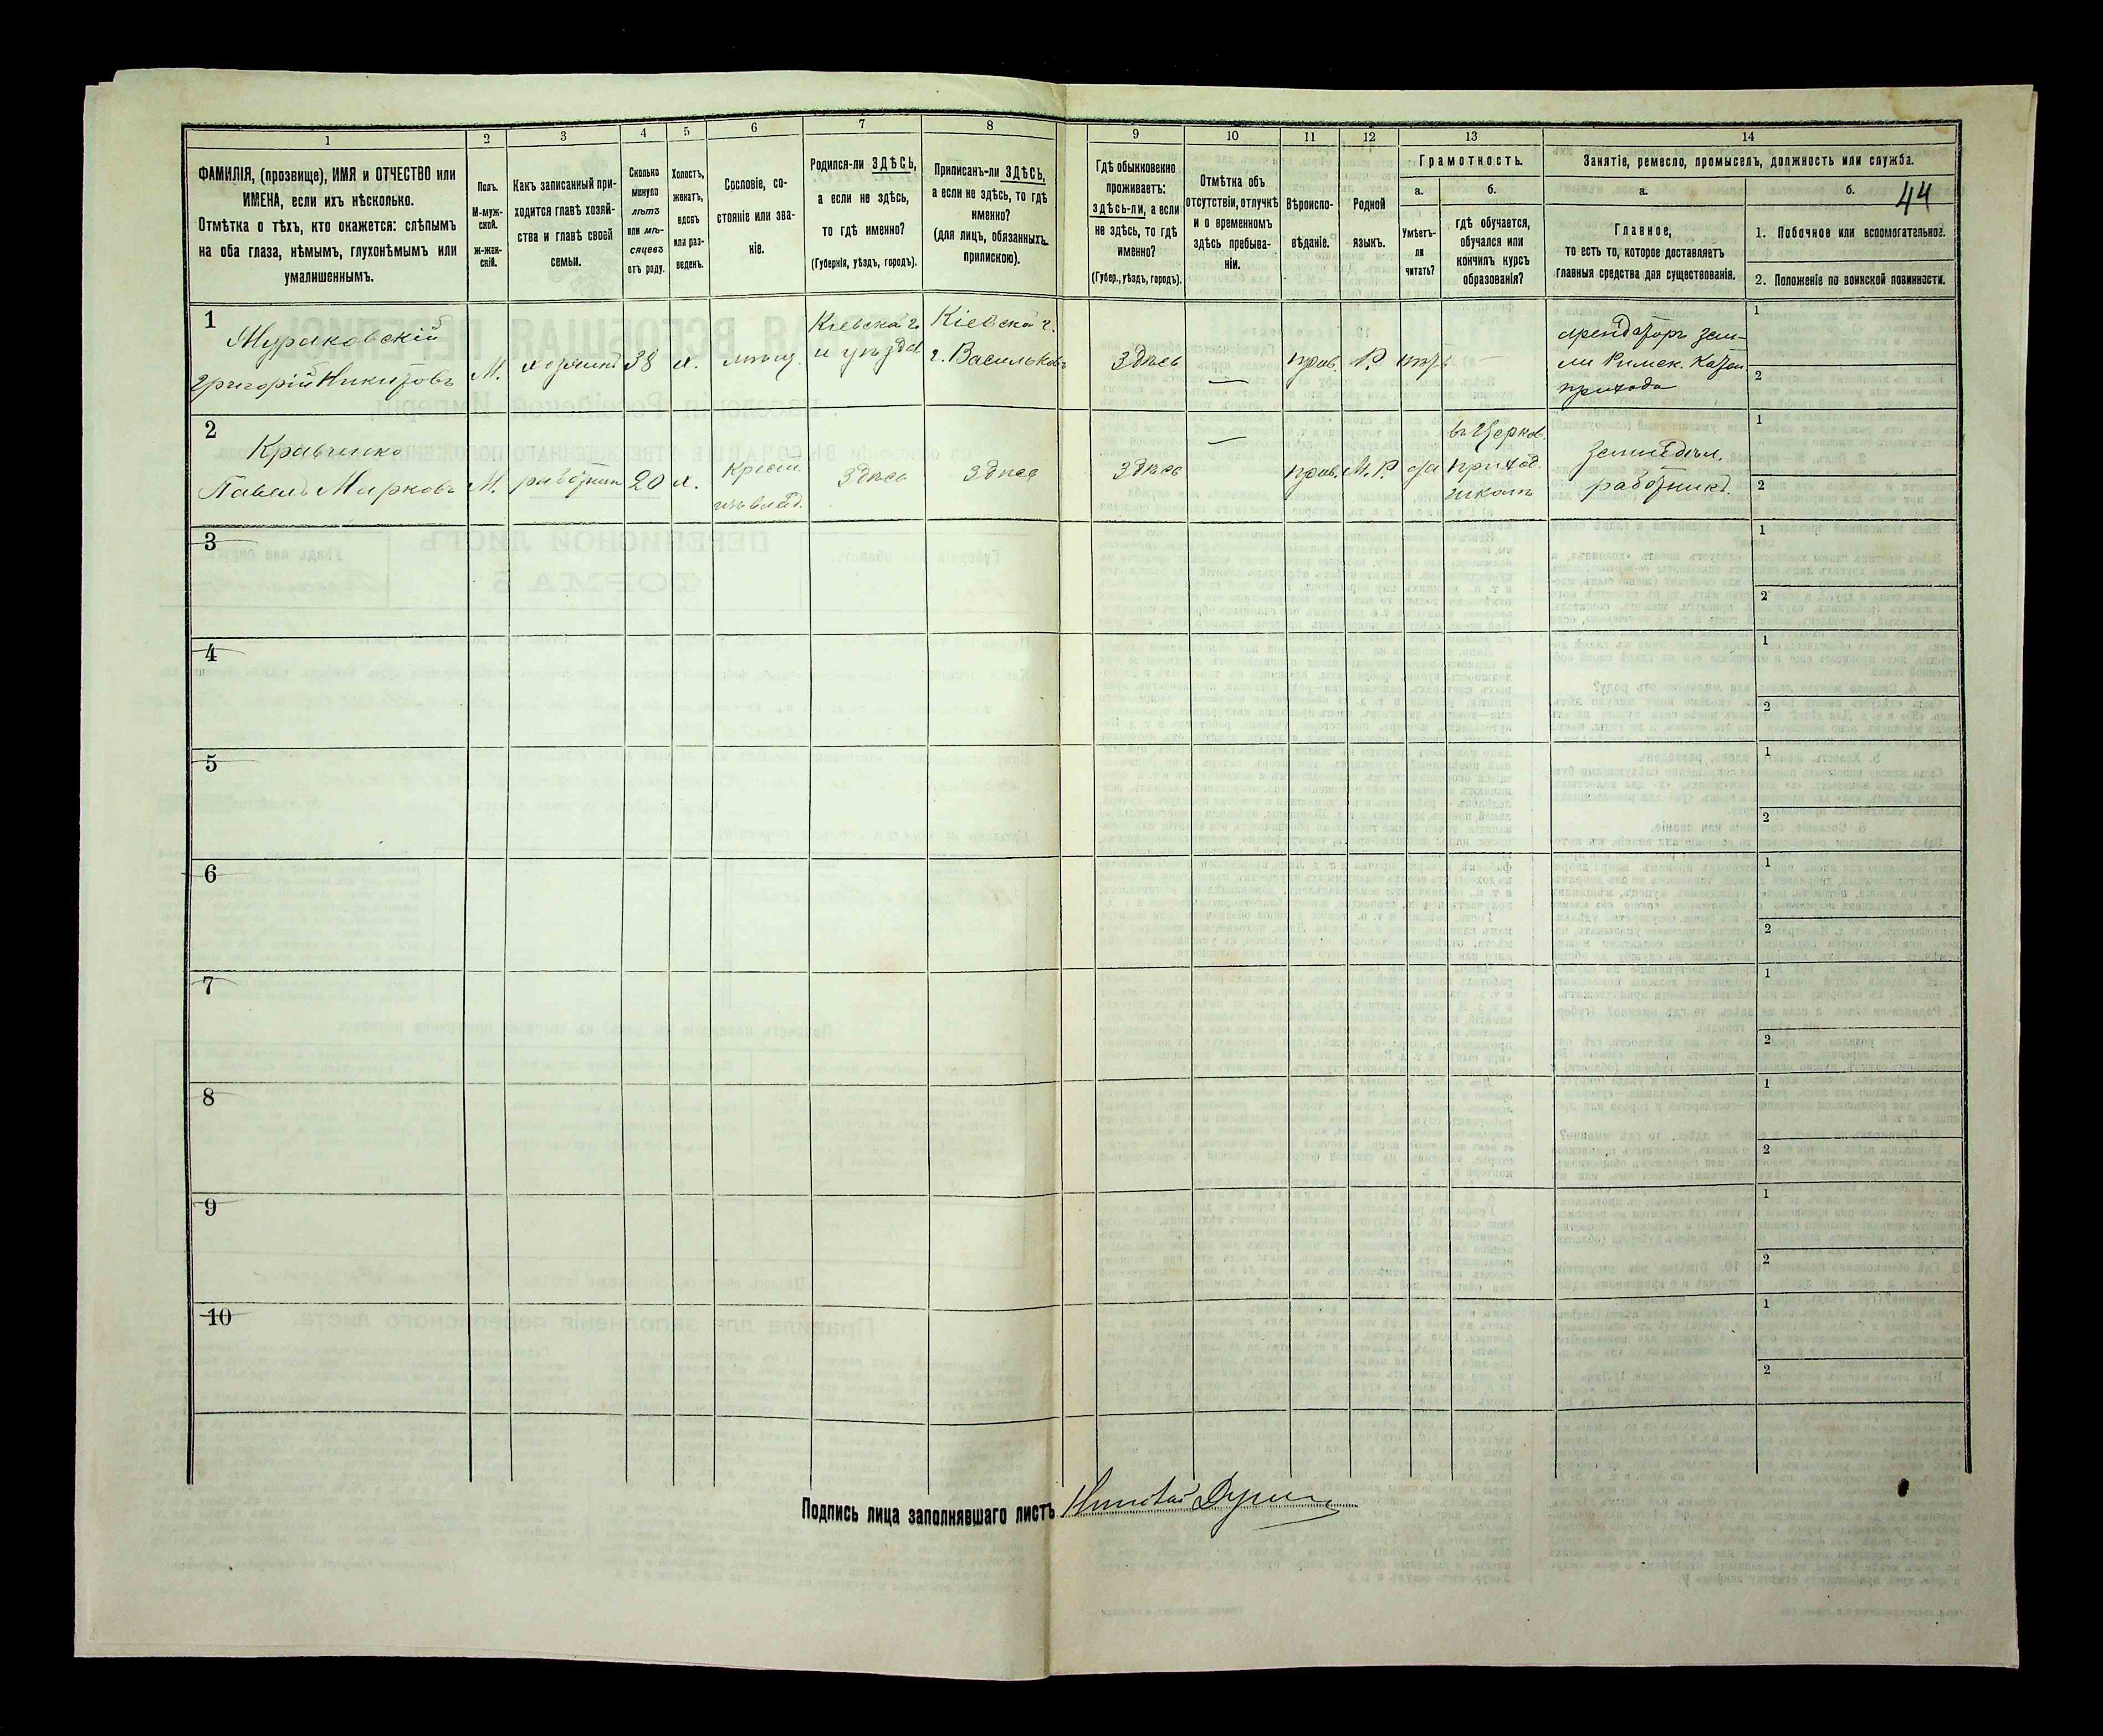 1 2 3 4 5 6 7 8 9 10 11 12 13 14
ФАМИЛІЯ, (прозвище), ИМЯ и ОТЧЕСТВО или
ИМЕНА, если ихъ нѣсколько.
Отмѣтка о тѣхъ, кто окажется: слѣпымъ
на оба глаза, нѣмымъ, глухонѣмымъ или
умалишеннымъ.
Полъ.
М-муж-
ской.
ж-жен-
скій.
Какъ записанный при-
ходится главѣ хозяй-
ства и главѣ своей
семьи.
Сколько
минуло
лѣтъ
или мѣ-
сяцевъ
отъ роду.
Холостъ,
женатъ,
вдовъ
или раз-
веденъ.
Сословіе, со-
стояніе или зва-
ніе.
Родился-ли ЗДѢСЬ,
а если не здѣсь,
то гдѣ именно?
(Губернія, уѣздъ, городъ).
Приписанъ-ли ЗДѢСЬ,
а если не здѣсь, то гдѣ
именно?
(для лицъ, обязанныхъ
припискою).
Гдѣ обыкновенно
проживаетъ:
здѣсь-ли, а если
не здѣсь, то гдѣ
именно?
(Губер., уѣздъ, городъ).
Отмѣтка объ
отсутствіи, отлучкѣ
и о временномъ
здѣсь пребыва-
ніи.
Вѣроиспо-
вѣданіе.
Родной
языкъ.
Грамотность.
а.
Умѣетъ-
ли
читать?
б.
гдѣ обучается,
обучался или
кончилъ курсъ
образованія?
Занятіе, ремесло, промыселъ, должность или служба.
а.
Главное,
то есть то, которое доставляетъ
главныя средства для существованія.
б.
44
1. Побочное или вспомогательное.
2. Положеніе по воинской повинности.
1
Мураковскій
Григорій Никитовъ
М.
хозяинъ
38
х.
мѣщ.
Кіевская г.
и уѣзда
Кіевская г.
г. Васильковъ
Здѣсь
—
прав.
Р.
нѣтъ
—
арендаторъ зем-
ли Римск. Катол
прихода
1
2
2
Кравченко
Павелъ Марковъ
М.
работник
20
х.
крест.
изъ влад.
Здѣсь
Здѣсь
Здѣсь
—
прав.
М.Р.
да
въ Церков.
приход.
школѣ
земледѣл.
работникъ.
1
2
3
1
2
4
1
2
5
1
2
6
1
2
7
1
2
8
1
2
9
1
2
10
1
2
Подпись лица заполнявшаго листъ